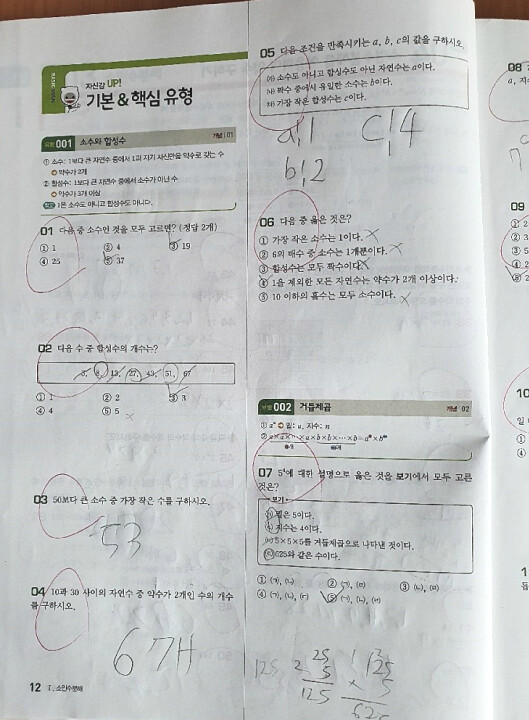 BASIC
자신감 UP!
기본 & 핵심 유형
유형 001 소수와 합성수 개념 01
① 소수: 1보다 큰 자연수 중에서 1과 자기 자신만을 약수로 갖는 수
➡ 약수가 2개
② 합성수: 1보다 큰 자연수 중에서 소수가 아닌 수
➡ 약수가 3개 이상
참고 1은 소수도 아니고 합성수도 아니다.
01 다음 중 소수인 것을 모두 고르면? (정답 2개)
① 1 ② 4 ③ 19
④ 25 ⑤ 37
02 다음 수 중 합성수의 개수는?
3, 8, 13, 27, 43, 51, 67
① 1 ② 2 ③ 3
④ 4 ⑤ 5
03 50보다 큰 소수 중 가장 작은 수를 구하시오.
53
04 10과 30 사이의 자연수 중 약수가 2개인 수의 개수
를 구하시오.
6개
12 Ⅰ. 소인수분해
05 다음 조건을 만족시키는 a, b, c의 값을 구하시오.
㈎ 소수도 아니고 합성수도 아닌 자연수는 a이다.
㈏ 짝수 중에서 유일한 소수는 b이다.
㈐ 가장 작은 합성수는 c이다.
a, 1 C, 4
b, 2
06 다음 중 옳은 것은?
① 가장 작은 소수는 1이다.
② 6의 배수 중 소수는 1개뿐이다.
③ 합성수는 모두 짝수이다.
④ 1을 제외한 모든 자연수는 약수가 2개 이상이다.
⑤ 10 이하의 홀수는 모두 소수이다.
유형 002 거듭제곱 개념 02
① aⁿ ➡ 밑: a, 지수: n
07 5⁴에 대한 설명으로 옳은 것을 보기에서 모두 고른
것은?
보기
㈀ 밑은 5이다.
㈁ 지수는 4이다.
㈂ 5×5×5를 거듭제곱으로 나타낸 것이다.
㈃ 625와 같은 수이다.
① ㈀, ㈁ ② ㈀, ㈃ ③ ㈁, ㈃
④ ㈀, ㈁, ㈂ ⑤ ㈀, ㈁, ㈃
125 25 125
5 × 5
125 625
08
09
10